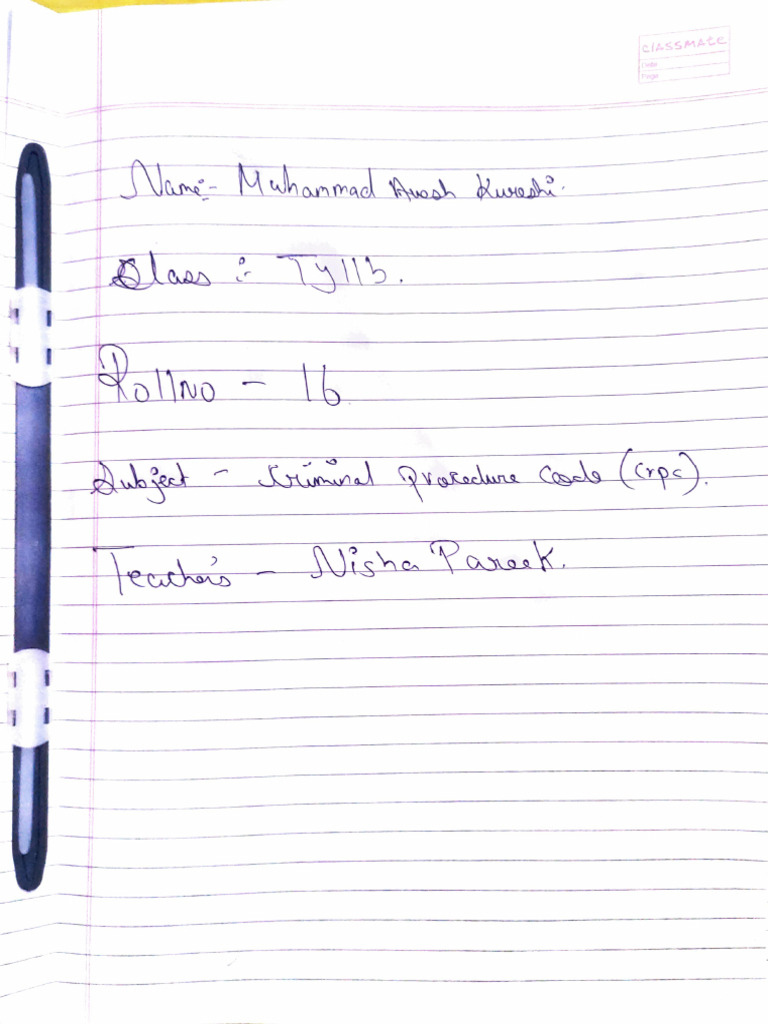 classmate
Date
Page
Name:- Muhammad Arash Kureshi.
Class :- Tyllb.
Rollno - 16
Subject - Criminal Procedure Code (crpc).
Teacher's - Nisha Pareek.